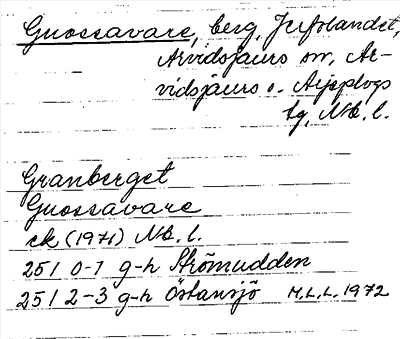 Guossavare, berg, Jerfolandet,
Arvidsjaurs sn, Ar-
vidsjaurs o. Arjeplogs
tg, Nb. l.
Granberget
Guossavare
ek (1971) Nb. l.
25I 0-1 g-h Strömudden
25I 2-3 g-h Östansjö M.L.L. 1972